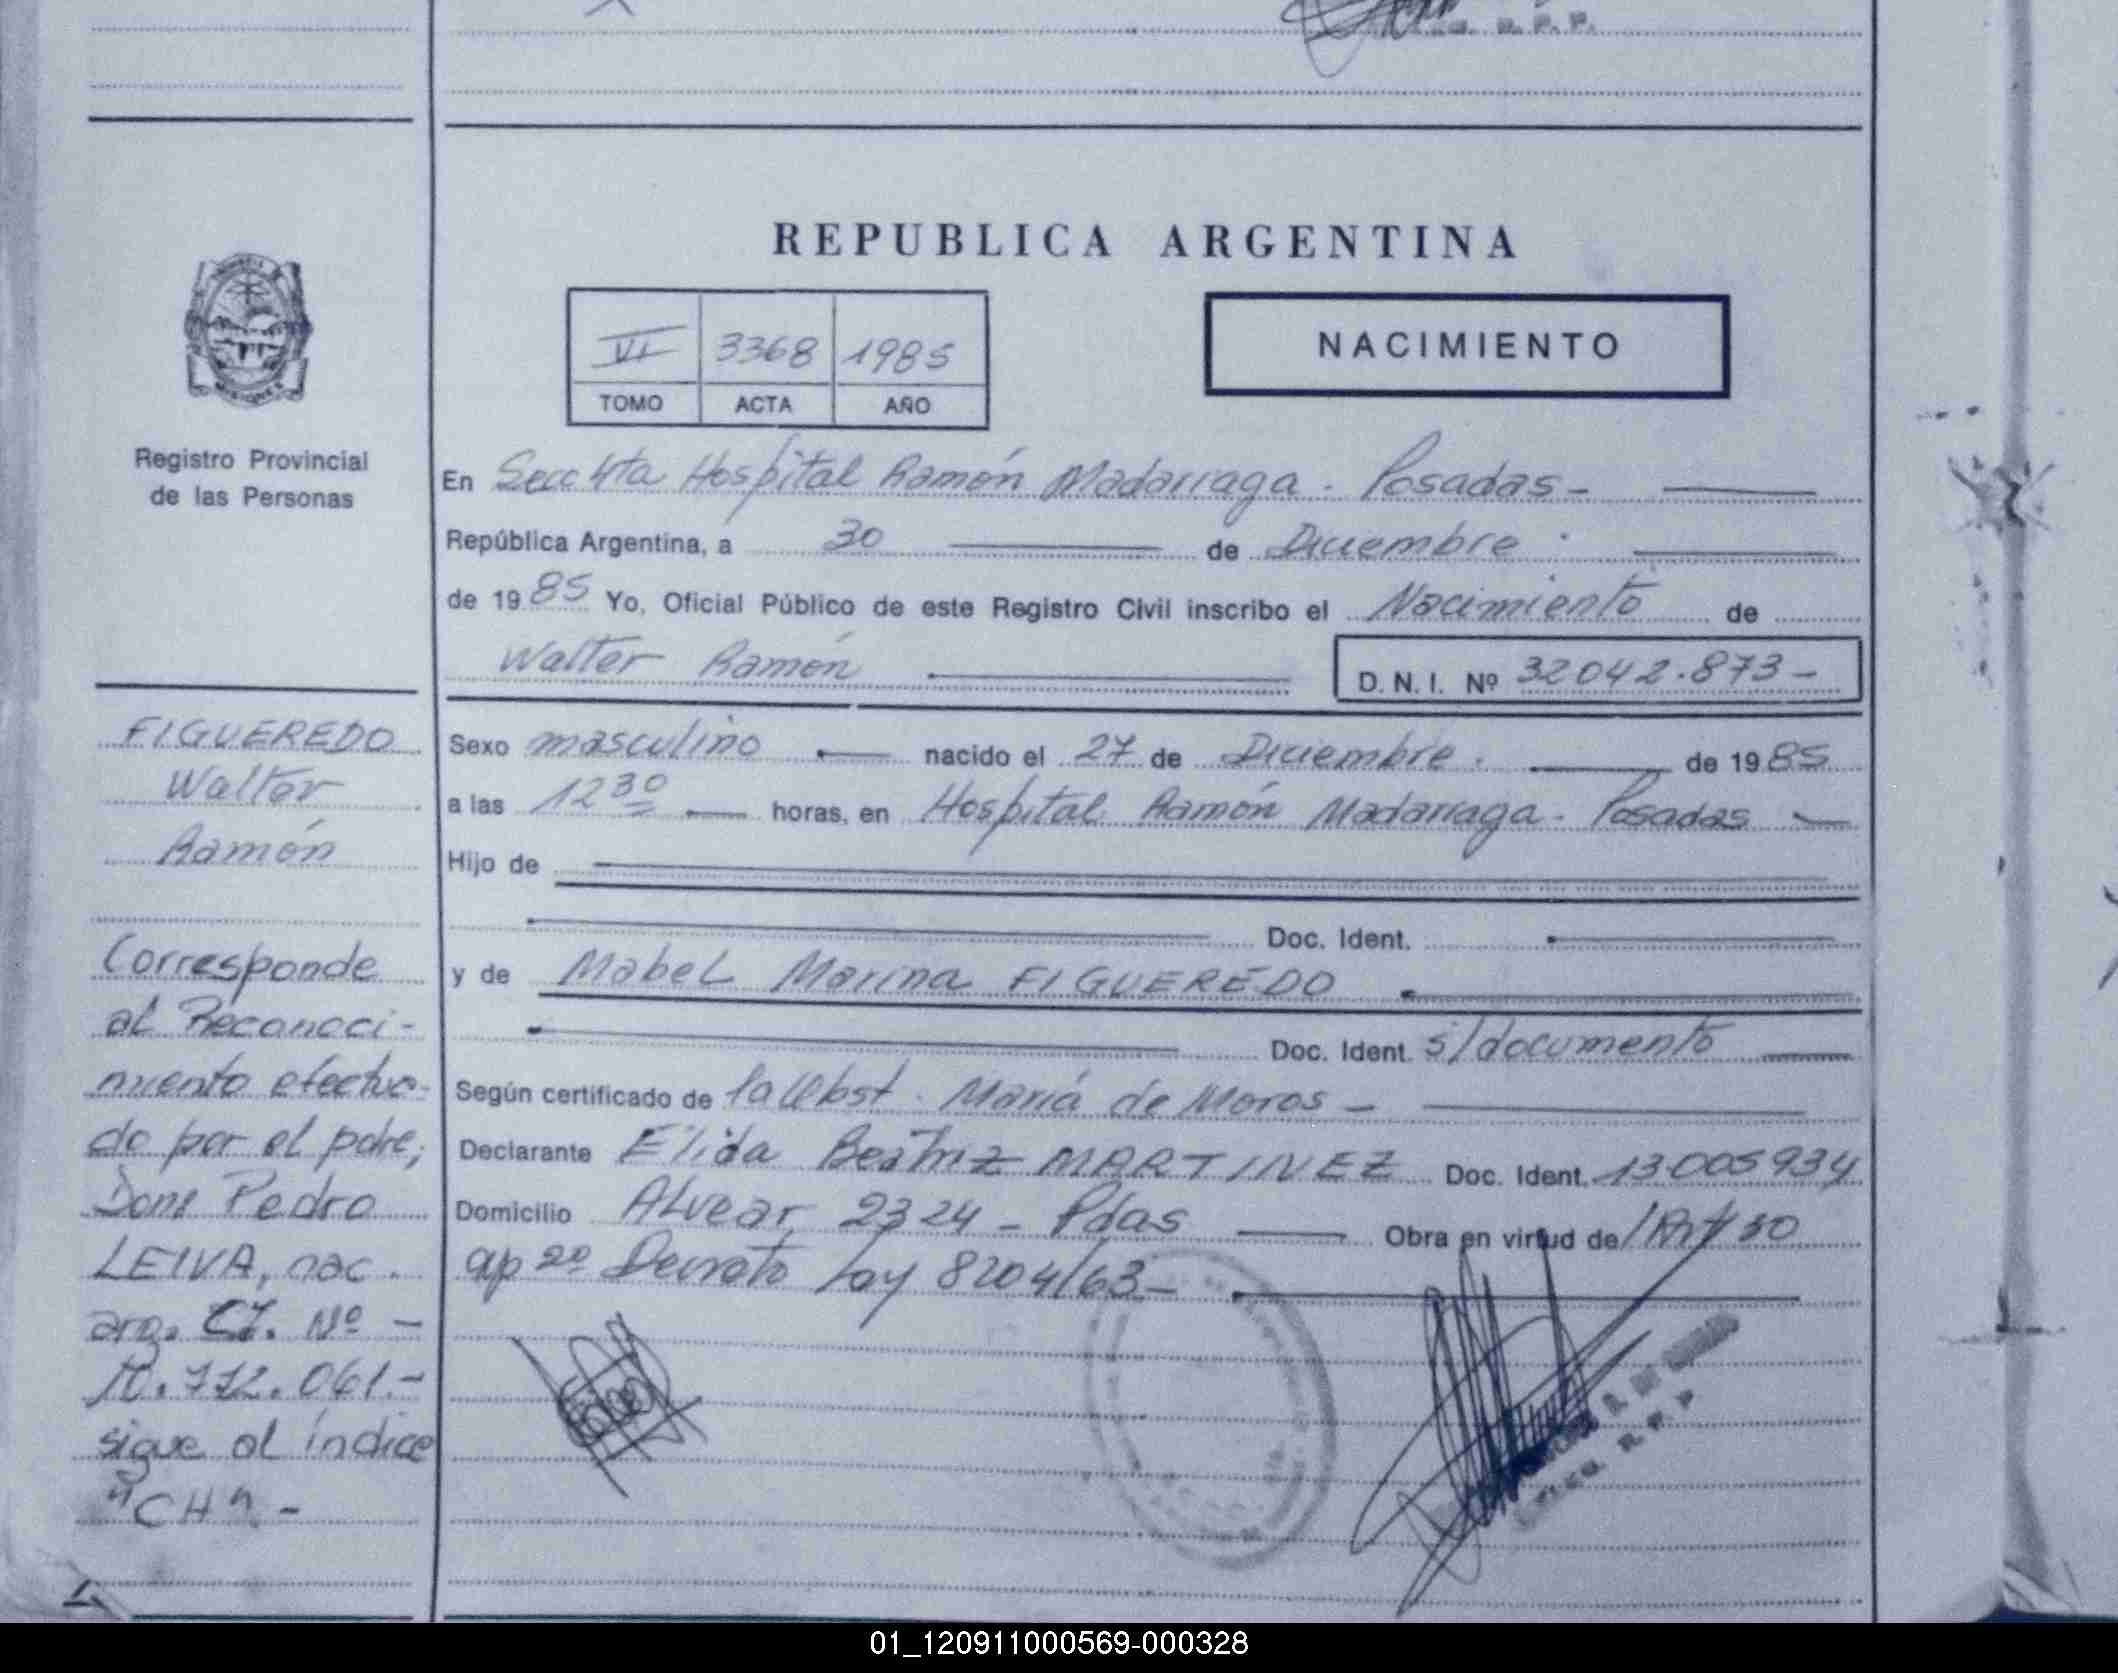 REPUBLICA ARGENTINA
VI 3368 1985
TOMO ACTA AÑO
NACIMIENTO
Registro Provincial
de las Personas
En Secc 4ta Hospital Ramón Madariaga. Posadas -
República Argentina, a 30 de Diciembre
de 1985 Yo, Oficial Público de este Registro Civil inscribo el Nacimiento de
Walter Ramón D. N. I. Nº 32042.873-
Sexo masculino nacido el 27 de Diciembre. de 1985
a las 12 30 horas, en Hospital Ramón Madariaga. Posadas
Hijo de
Doc. Ident.
y de Mabel Marina FIGUEREDO
Doc. Ident. s/documento
Según certificado de la Obst. María de Moros -
Declarante Elida Beatriz MARTINEZ Doc. Ident. 13005934
Domicilio Alvear 2324 - Pdas Obra en virtud de Art 30
ap 2º Decreto Ley 8204/63-
FIGUEREDO
Walter
Ramón
Corresponde
al Reconoci-
miento efectua-
do por el pdre,
Don Pedro
LEIVA, nac.
arg. C.I. Nº -
10.772.061.-
sigue al índice
"CH" -
01_120911000569-000328